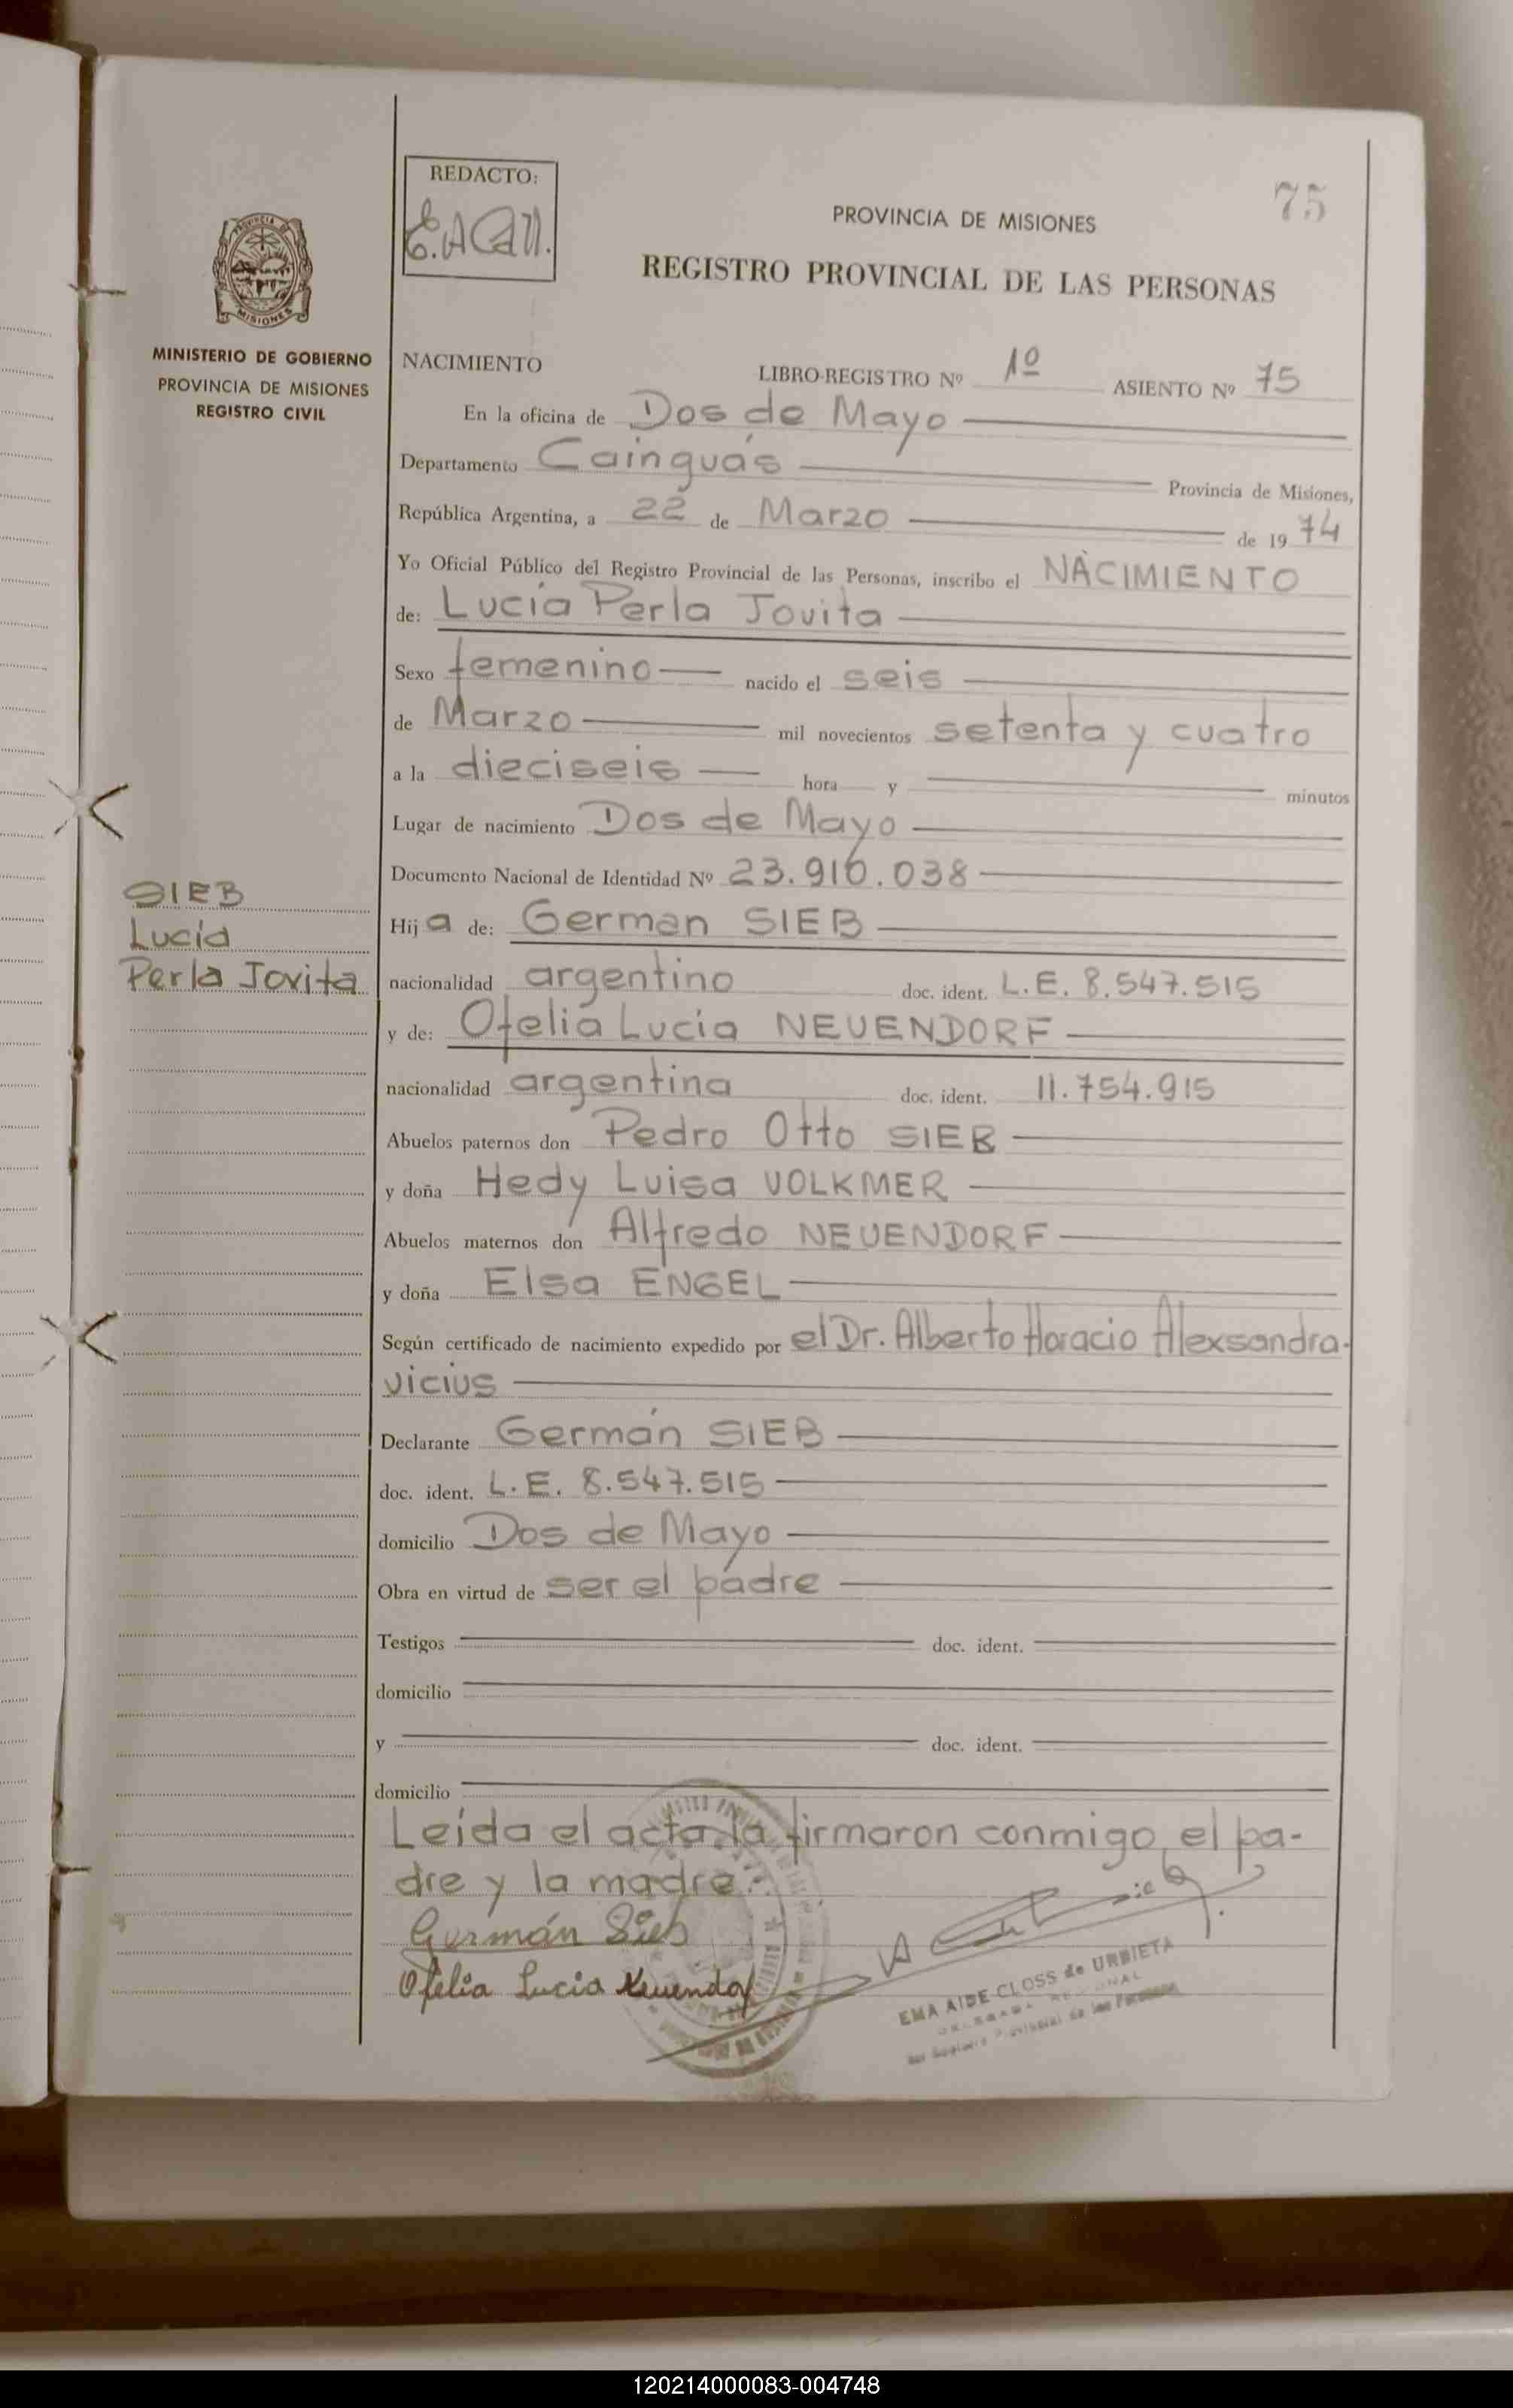 REDACTO:
E.A.Call.
75
PROVINCIA DE MISIONES
REGISTRO PROVINCIAL DE LAS PERSONAS
PROVINCIA DE
MISIONES
MINISTERIO DE GOBIERNO
PROVINCIA DE MISIONES
REGISTRO CIVIL
NACIMIENTO LIBRO-REGISTRO Nº 1º ASIENTO Nº 75
En la oficina de Dos de Mayo
Departamento Cainguás Provincia de Misiones,
República Argentina, a 22 de Marzo de 1974
Yo Oficial Público del Registro Provincial de las Personas, inscribo el NACIMIENTO
de: Lucía Perla Jovita
Sexo femenino nacido el seis
de Marzo mil novecientos setenta y cuatro
a la dieciseis hora y minutos
Lugar de nacimiento Dos de Mayo
Documento Nacional de Identidad Nº 23.916.038
SIEB
Lucía
Perla Jovita
Hija de: German SIEB
nacionalidad argentino doc. ident. L.E. 8.547.515
y de: Ofelia Lucía NEUENDORF
nacionalidad argentina doc. ident. 11.754.915
Abuelos paternos don Pedro Otto SIEB
y doña Hedy Luisa VOLKMER
Abuelos maternos don Alfredo NEUENDORF
y doña Elsa ENGEL
Según certificado de nacimiento expedido por el Dr. Alberto Horacio Alexsandra-
vicius
Declarante Germán SIEB
doc. ident. L.E. 8.547.515
domicilio Dos de Mayo
Obra en virtud de ser el padre
Testigos doc. ident.
domicilio
y doc. ident.
domicilio
Leída el acta la firmaron conmigo, el pa-
dre y la madre.
Germán Sieb
Ofelia Lucia Neuendorf
EMA AIDE CLOSS de URBIETA
Provincial de las Personas
120214000083-004748